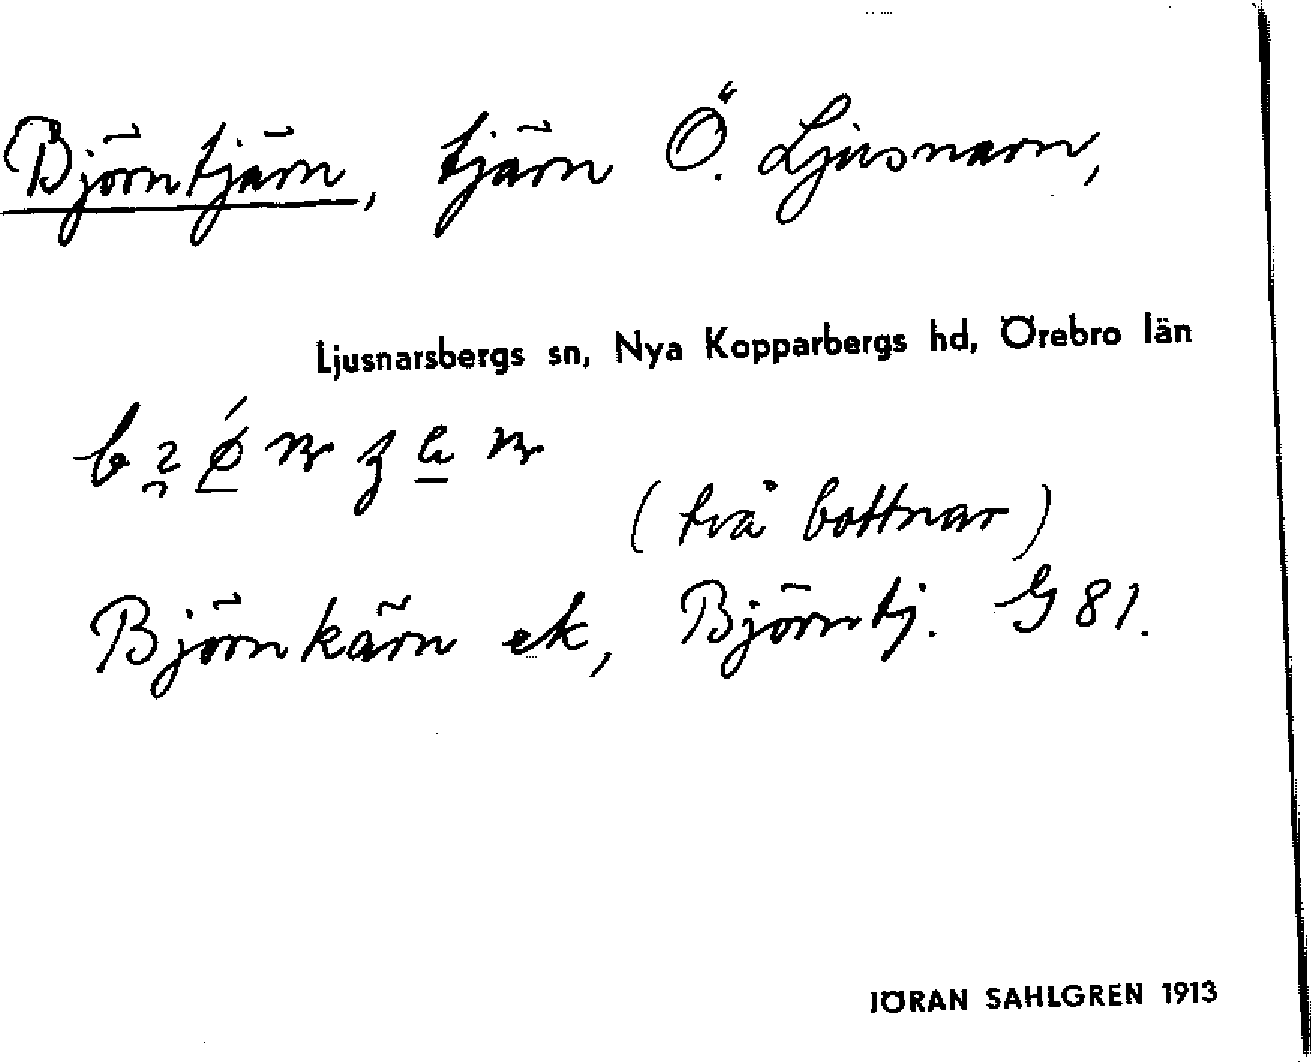 Björntjärn, tjärn Ö. Ljusnarn,
Ljusnarsbergs sn, Nya Kopparbergs hd, Örebro län
(två bottnar)
Björnkärn ek, Björntj. G 81.
JÖRAN SAHLGREN 1913